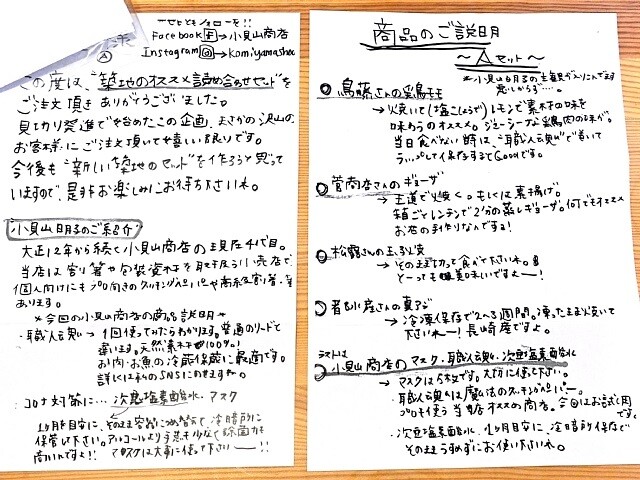 ぜひともフォローを!!
Facebook f → 小見山商店
Instagram → Komiyamasho
この度は、"築地のオススメ詰め合わせセット"を
ご注文頂きありがとうございました。
見切り発進で始めたこの企画、まさかの沢山の
お客様にご注文頂いて嬉しい限りです。
今後も"新しい築地のセット"を作ろうと思って
いますので、是非お楽しみにお待ち下さいね。
小見山明子のご紹介
大正12年から続く小見山商店の現店主4代目。
当店は割り箸や包装資材を取り扱う小売店で、
個人向けにもプロ向きのクッキングペーパーや高級割箸、等
あります。
*今回の小見山商店の商品説明*
・職人云魂 → 1回使ってみたらわかります。普通のリードと
違います。天然素材100%!
お肉・お魚の冷蔵保存に最適です。
詳しくは私のSNSにのせますね。
コロナ対策に… 次亜塩素酸水、マスク
1ヶ月を目安に、そのまま容器につめ替えて、冷暗所に
保管して下さい。アルコールより手荒れ少なくて除菌力も
高いんですよ!! マスクは大事に使って下さいー!!
商品のご説明
〜Aセット〜
鳥藤さんの鶏モモ
→ 焼いて(塩こしょうで)レモンで素材の味を
味わうのオススメ。ジューシーな鶏肉の味が。
当日食べない時は、"職人云魂"で巻いて
ラップして保存するとGoodです。
菅商店さんのギョーザ
→ 王道で火焼く。もしくは素揚げ。
箱ごとレンチンで2分の蒸しギョーザ。何でもオススメ
お店の手作りなんですよ!
松露さんの玉子焼
→ そのまま切って食べて下さいネ。
とーっても美味しいですよー!
君水産さんの真アジ
→ 冷凍保存で2〜3週間。凍ったまま焼いて
下さいネー! 長崎産ですよ。
ラストは
小見山商店のマスク、職人云魂、次亜塩素酸水
→ マスクは5枚です。大切に使って下さい。
・職人云魂は魔法のクッキングペーパー。
プロも使う当店オススメの商店。今回はお試し用
です。
・次亜塩素酸水、1ヶ月目安に、冷暗所保存で
そのままうすめずにお使い下さいね。